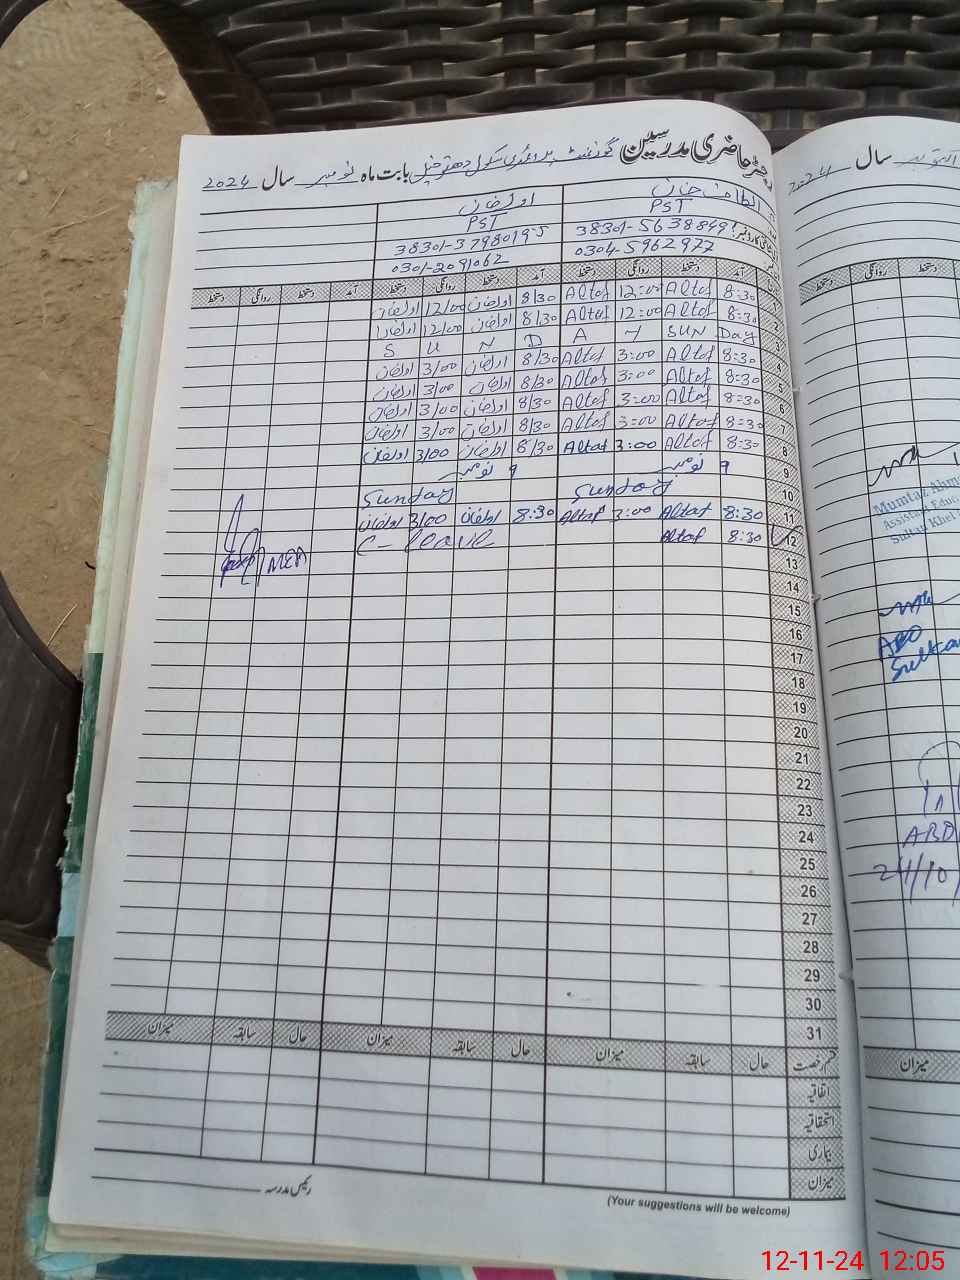 رجسٹر حاضری مدرسین گورنمنٹ پرائمری سکول بابت ماہ نومبر سال 2024
الطاف خان
PST PST
38301-5638849 38301-3798019-5
0304-5962977 0301-2091062
آمد دستخط روانگی دستخط آمد دستخط روانگی دستخط آمد دستخط روانگی دستخط
1 8:30 Altaf 12:00 Altaf 8/30 12/00
2 8:30 Altaf 12:00 Altaf 8/30 12/00
3 SUN Day S U N D A Y
4 8:30 Altaf 3:00 Altaf 8/30 3/00
5 8:30 Altaf 3:00 Altaf 8/30 3/00
6 8:30 Altaf 3:00 Altaf 8/30 3/00
7 8:30 Altaf 3:00 Altaf 8/30 3/00
8 8:30 Altaf 3:00 Altaf 8/30 3/00
9 9 نومبر 9 نومبر
10 Sunday Sunday
11 8:30 Altaf 3:00 Altaf 8:30 3/00
12 8:30 Altaf C-leave
MEA
13
14
15
16
17
18
19
20
21
22
23
24
25
26
27
28
29
30
31
قسم رخصت حال سابقہ میزان حال سابقہ میزان حال سابقہ میزان
اتفاقیہ
استحقاقیہ
بیماری
میزان
رئیس مدرسہ
(Your suggestions will be welcome)
سال 2024
روانگی دستخط
دستخط
Mumtaz Ahm
Assistant Educ
Sultan Khel
ABO
24/10
میزان
12-11-24 12:05